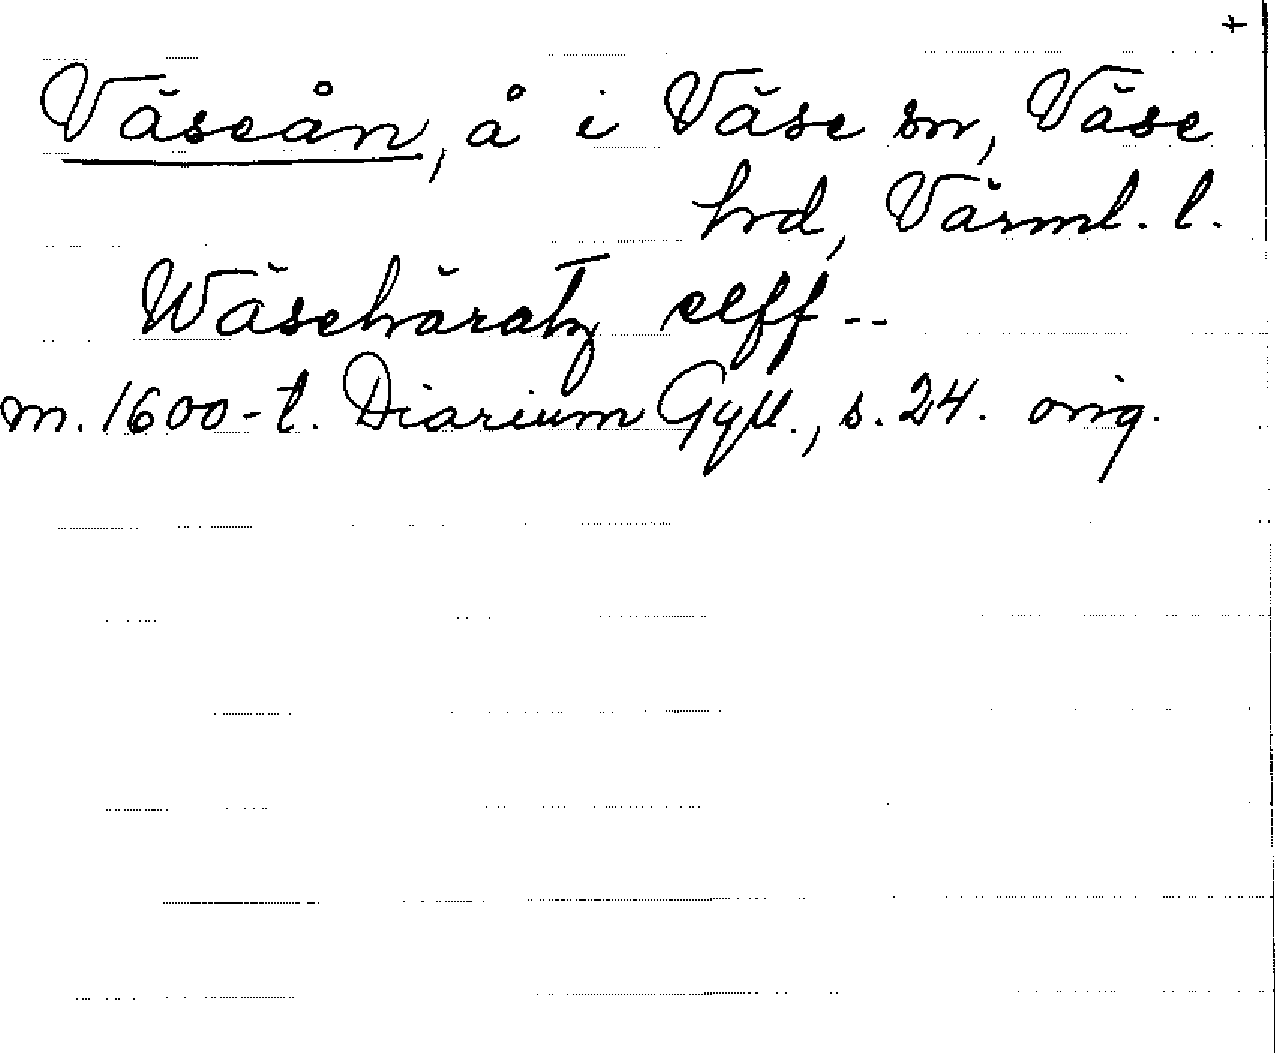 +
Väseån, å i Väse sn, Väse
hrd, Värml. l.
Wäsehäratz elff --
m. 1600-t. Diarium Gyll., s. 24. orig.